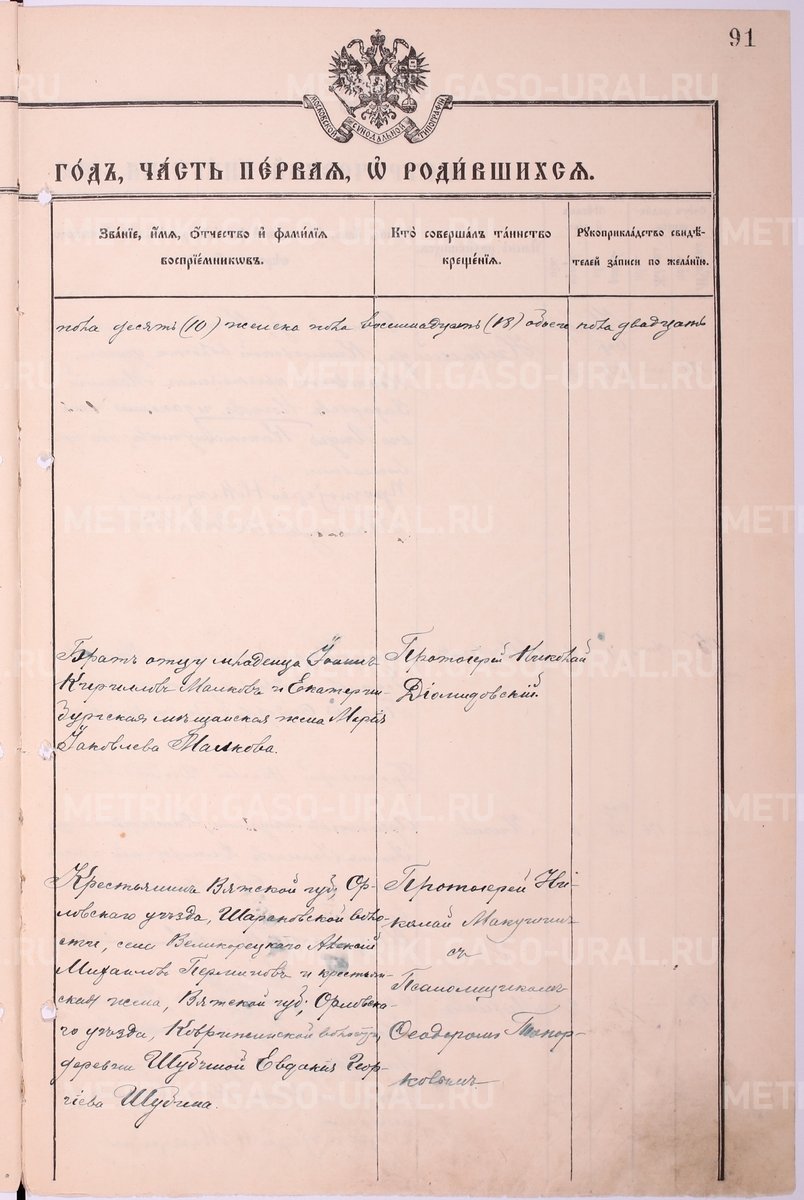 91
МОСКОВСКОЙ СУНОДАЛЬНОЙ ТИПОГРАФІИ
ГО́ДЪ, ЧА́СТЬ ПЕ́РВАѦ, Ѡ҆ РОДИ́ВШИХСѦ.
Зва́нїе, и҆́мѧ, ѻ҆́тчество и҆ фами́лїѧ
воспрїе́мникѡвъ.
Кто̀ соверша́лъ та́инство
креще́нїѧ.
Рукоприкла́дство свидѣ́-
телей за́писи по жела́нїю.
пола десять (10) женска пола восемнадцать (18) обоего пола двадцать
Братъ отцу младенца Іоаннъ
Кирилловъ Малковъ и Екатерин-
бургская мѣщанская жена Марія
Яковлева Малкова.
Протоіерей Николай
Діомидовскій.
Крестьянинъ Вятской губ., Ор-
ловскаго уѣзда, воло-
сти, села Великорецкаго Алексій
Михаиловъ Перминовъ и крестьян-
ская жена, Вятской губ., Орловска-
го уѣзда, волости,
деревни Шубиной Евдокія Геор-
гіева Шубина.
Протоіерей Ни-
колай
съ
Псаломщикомъ
Ѳеодоромъ Топор-
ковымъ
METRIKI.GASO-URAL.RU